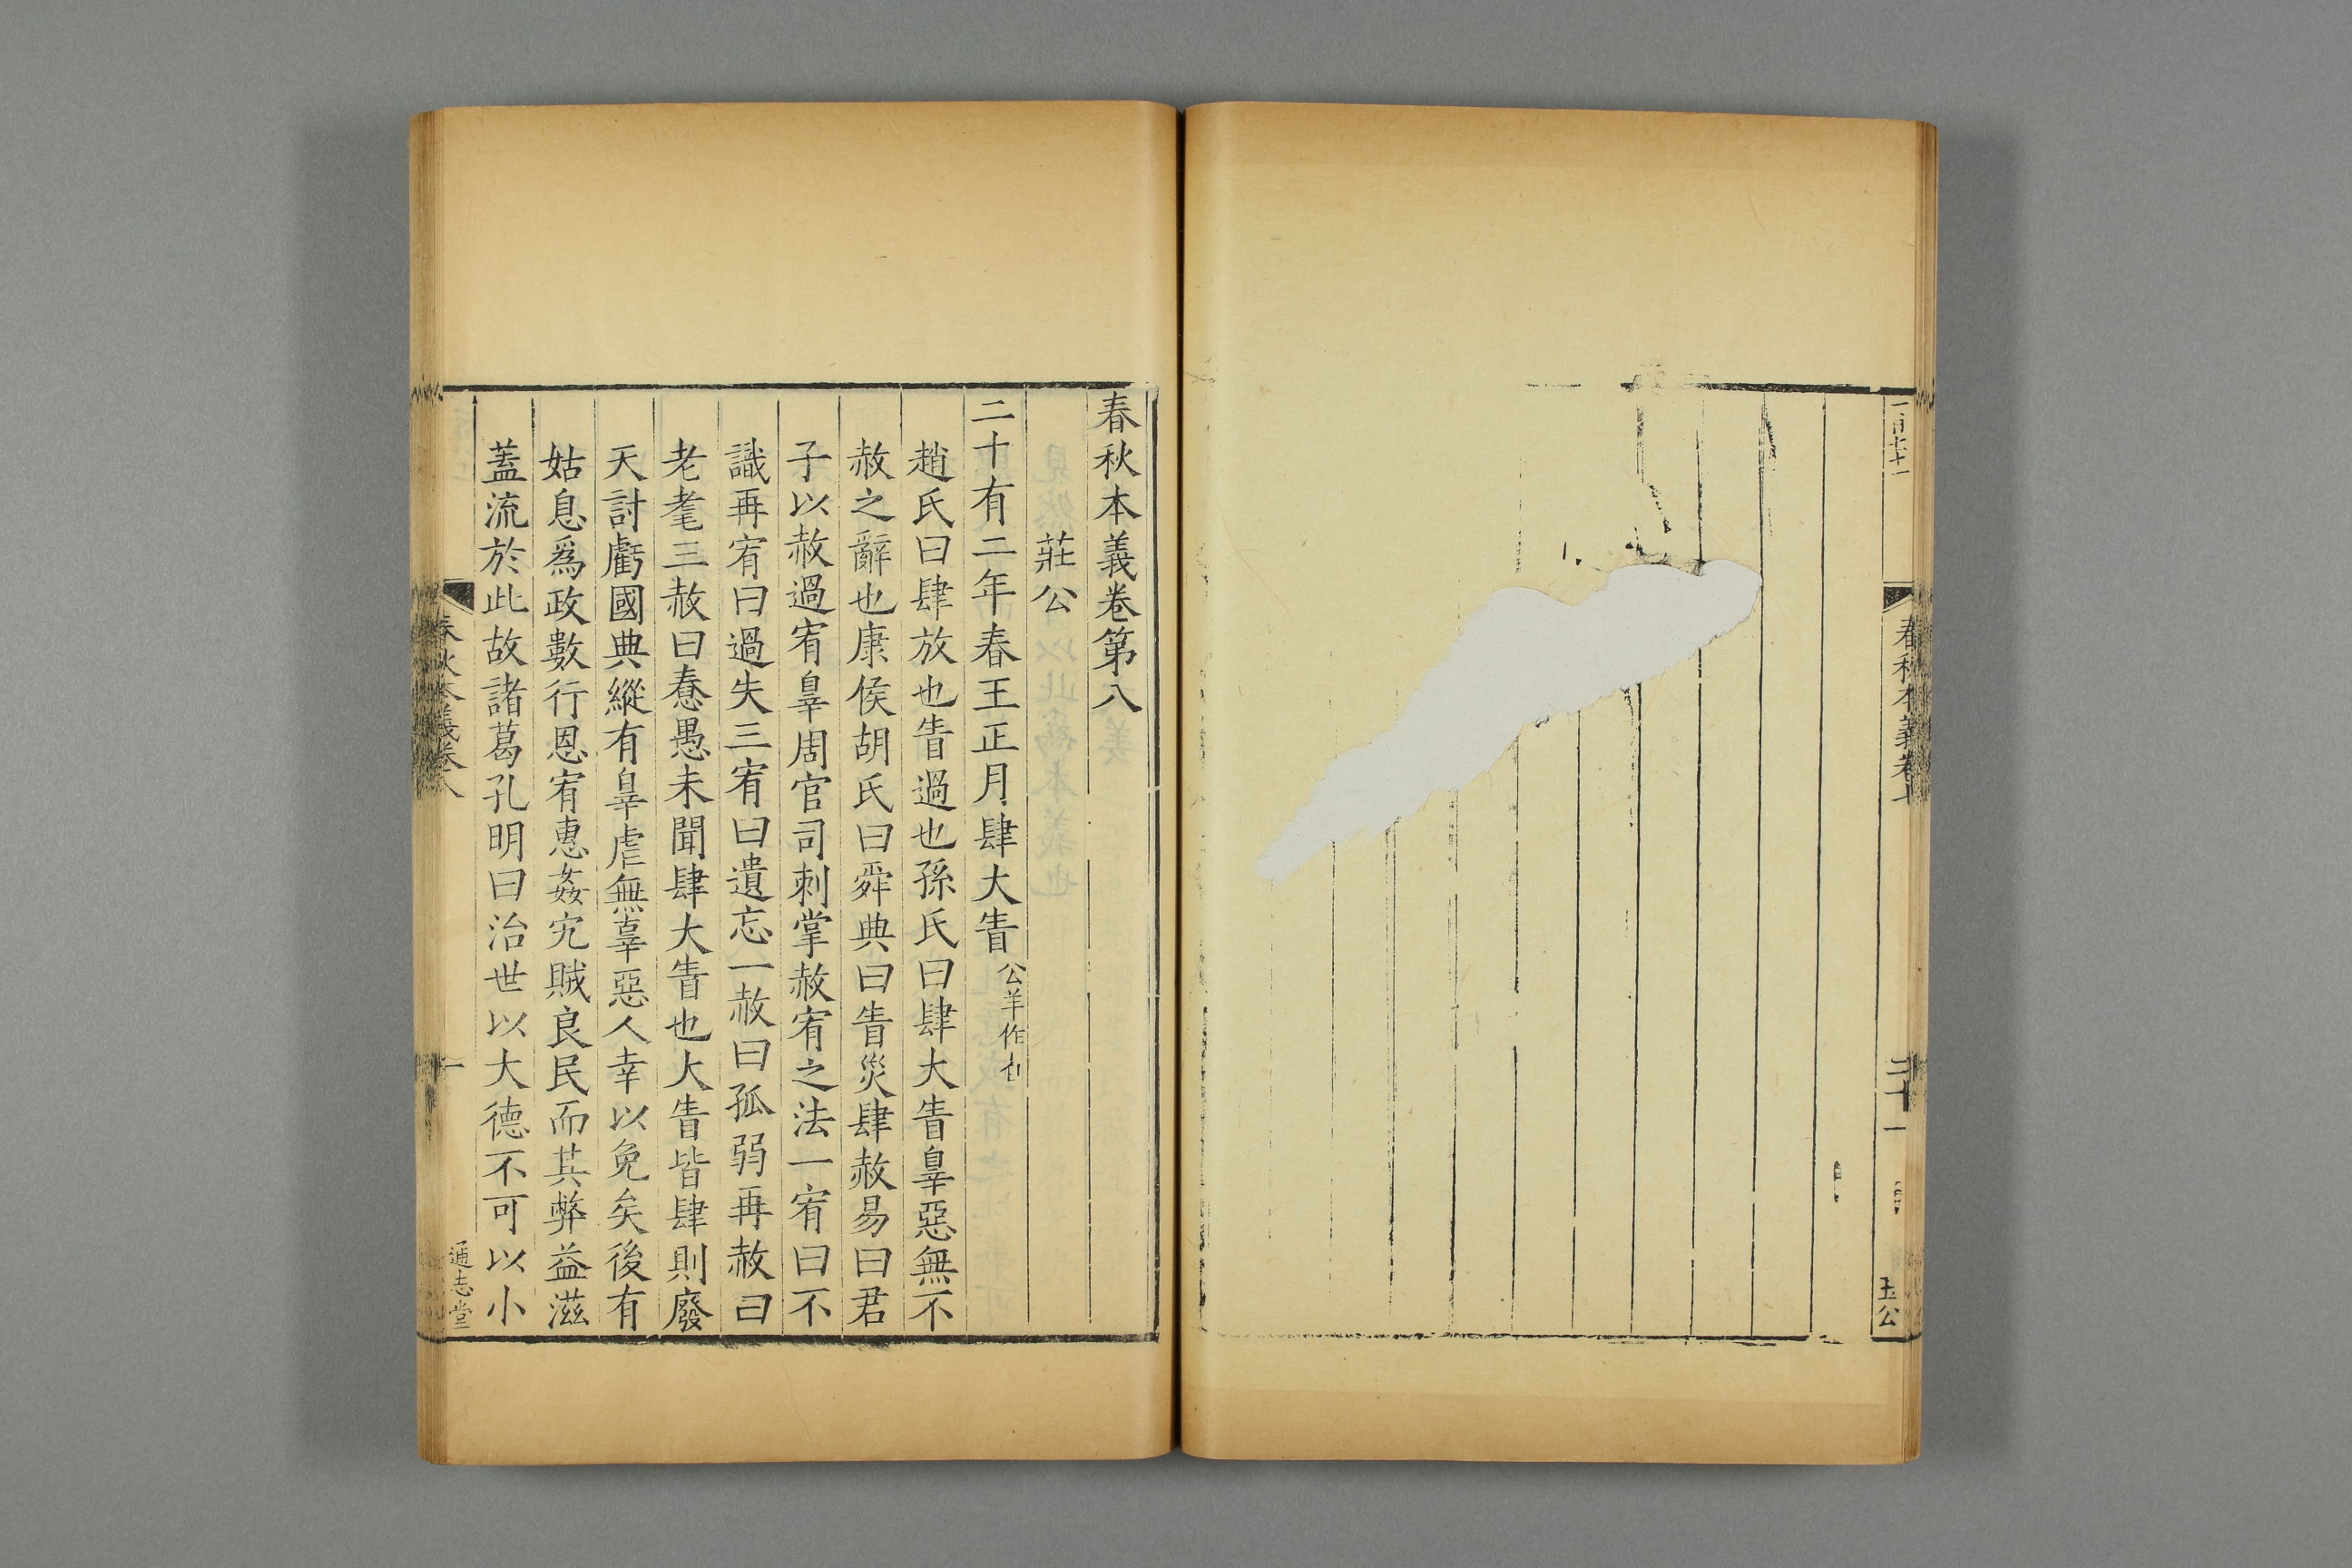 春秋本義卷七
二十一
玉公
春秋本義卷第八
莊公
二十有二年春王正月肆大眚公羊作𥇛
趙氏曰肆放也眚過也孫氏曰肆大眚辠惡無不
赦之辭也康侯胡氏曰舜典曰眚災肆赦易曰君
子以赦過宥辠周官司刺掌赦宥之法一宥曰不
識再宥曰過失三宥曰遺忘一赦曰孤弱再赦曰
老耄三赦曰惷愚未聞肆大眚也大眚皆肆則廢
天討虧國典縱有辠虐無辜惡人幸以免矣後有
姑息爲政數行恩宥惠姦宄賊良民而其弊益滋
蓋流於此故諸葛孔明曰治世以大德不可以小
春秋本義卷八
一
通志堂